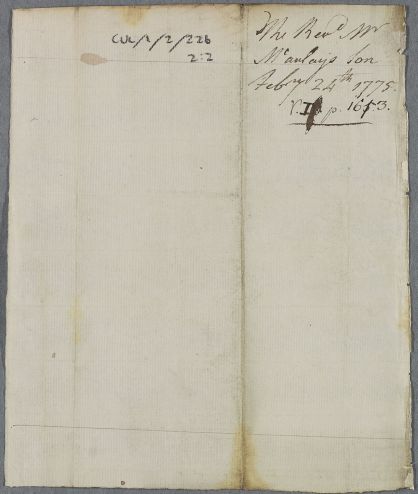 CUL/1/2/226
2:2
The Revd. Mr
Mcaulay's Son
Febry 24th 1775.
V. II p. 1653.